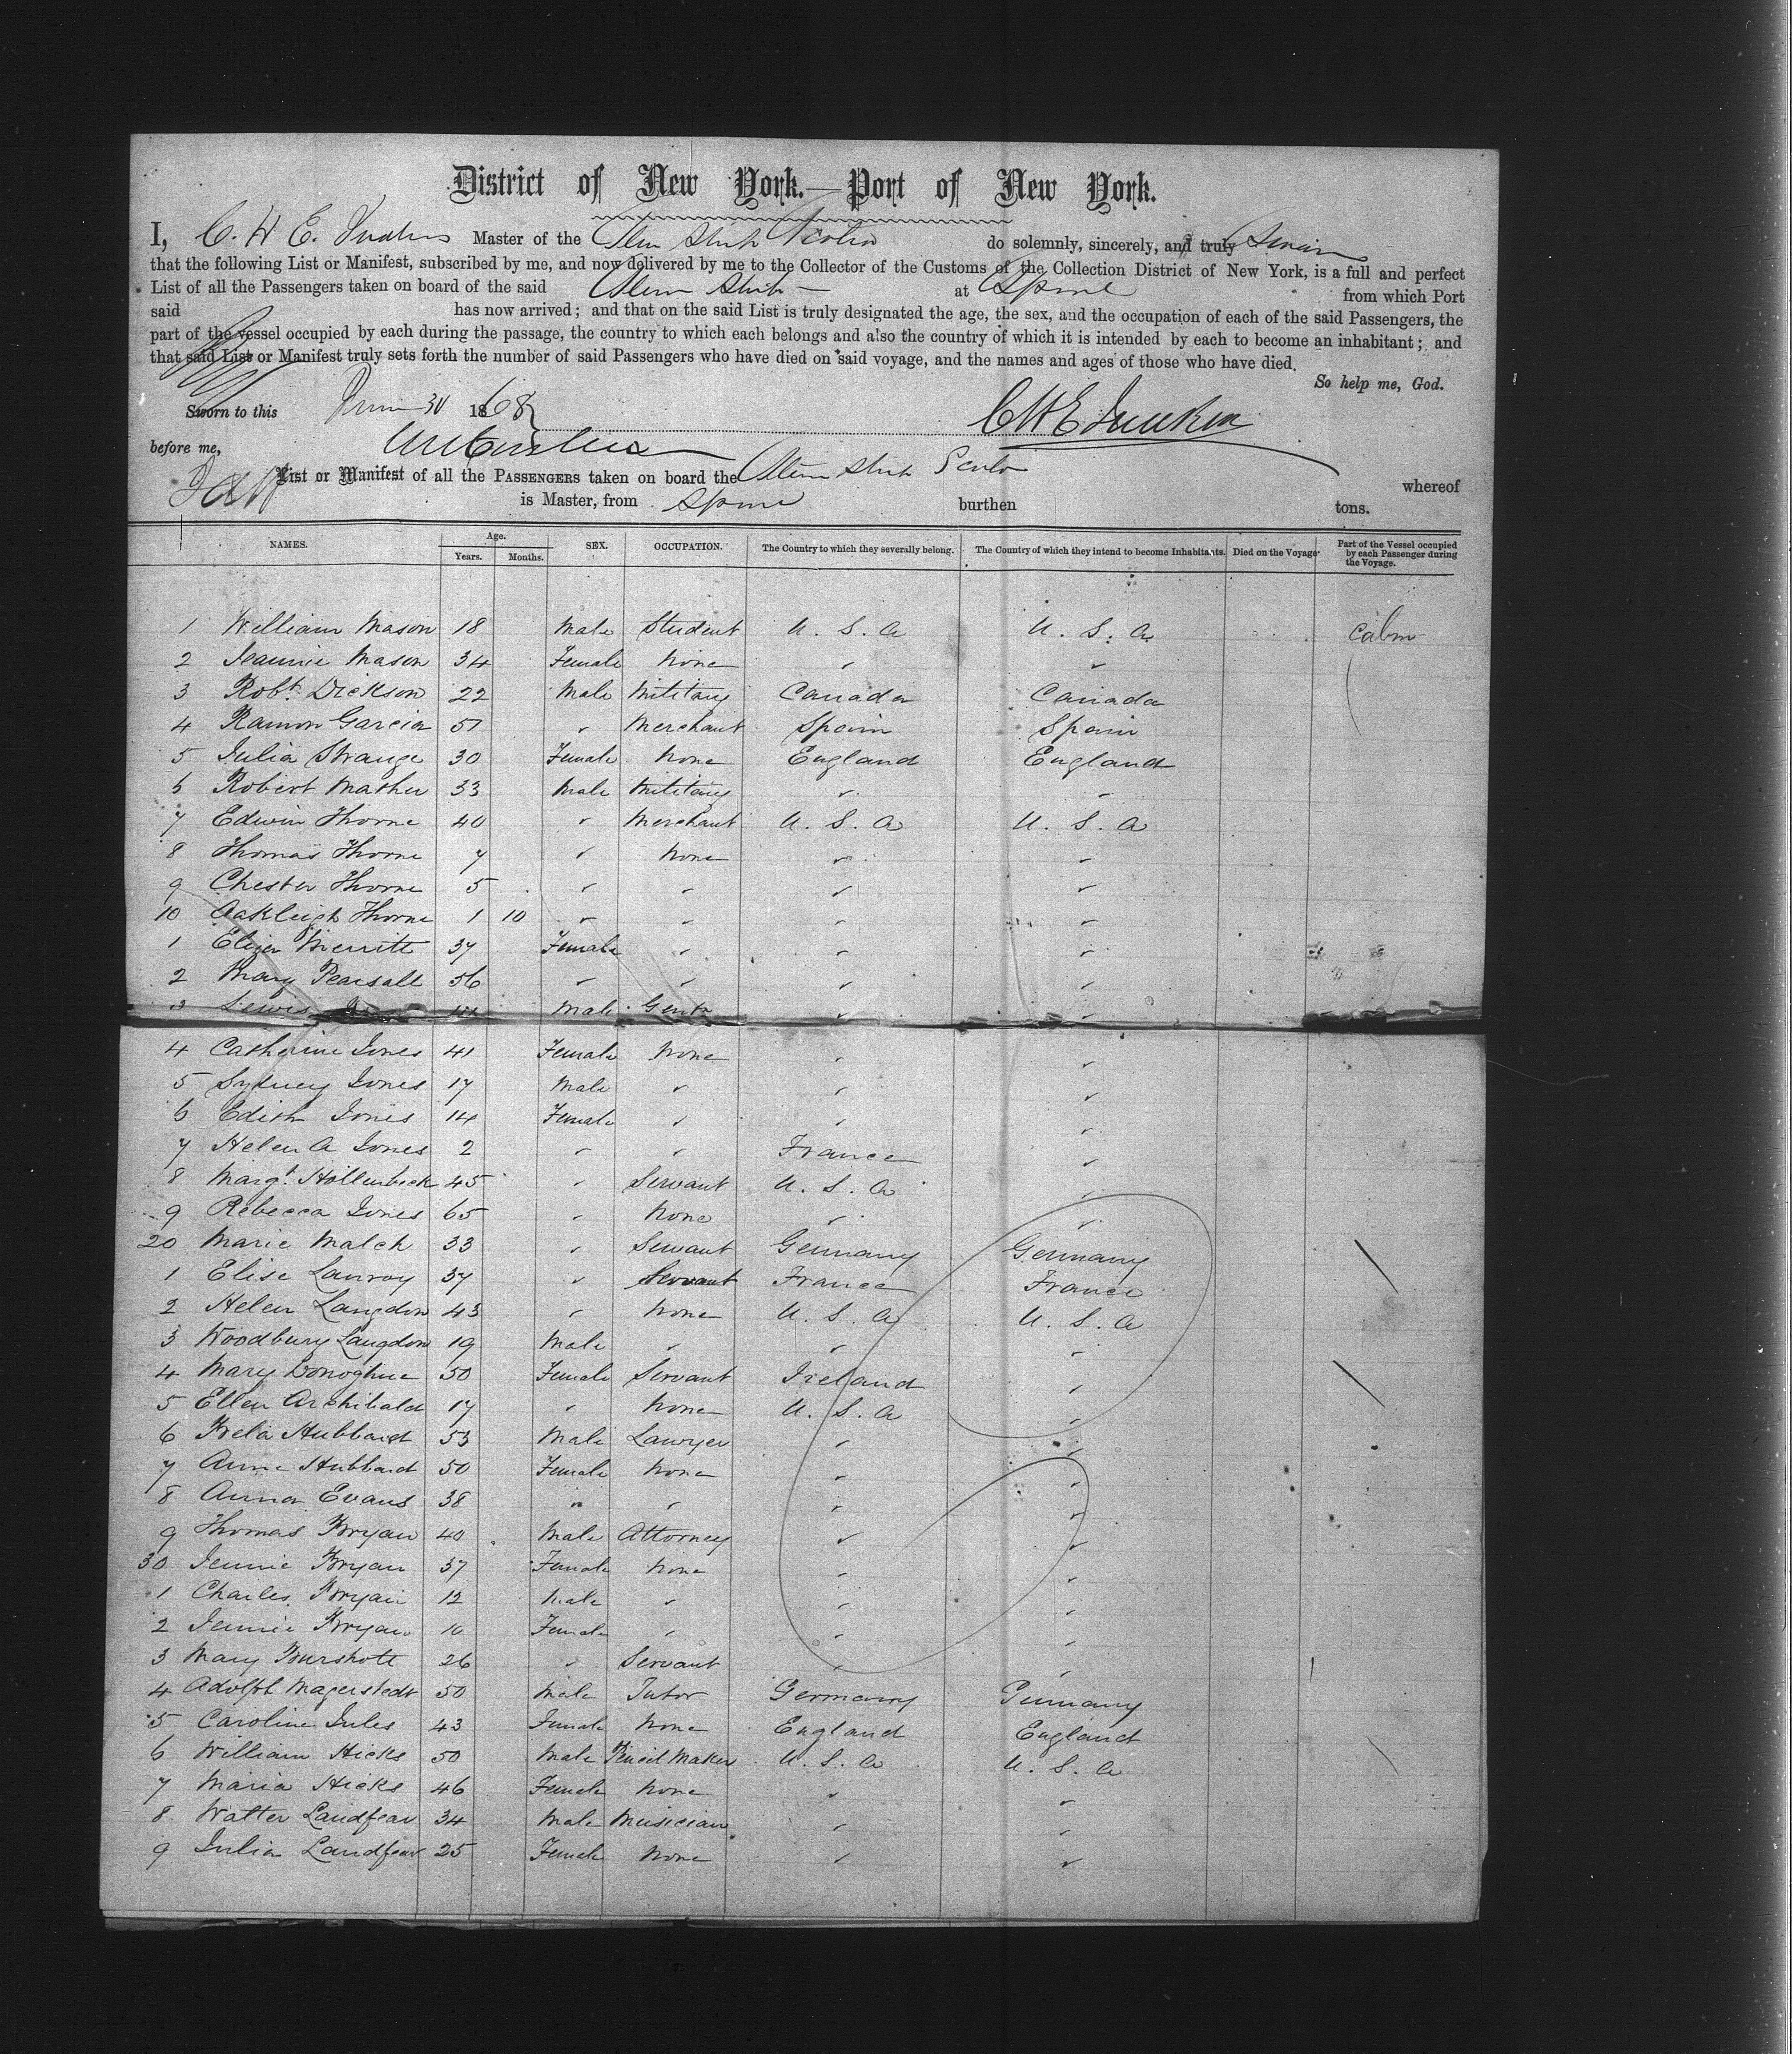 District of New York.—Port of New York.
I, C. H. E. Judkins Master of the Steam Ship Scotia do solemnly, sincerely, and truly Swear
that the following List or Manifest, subscribed by me, and now delivered by me to the Collector of the Customs of the Collection District of New York, is a full and perfect
List of all the Passengers taken on board of the said Steam Ship — at from which Port
said has now arrived; and that on the said List is truly designated the age, the sex, and the occupation of each of the said Passengers, the
part of the vessel occupied by each during the passage, the country to which each belongs and also the country of which it is intended by each to become an inhabitant; and
that said List or Manifest truly sets forth the number of said Passengers who have died on said voyage, and the names and ages of those who have died.
So help me, God.
Sworn to this June 30 1868
C H E Judkins
before me,
List or Manifest of all the PASSENGERS taken on board the Steam Ship Scotia whereof
is Master, from burthen tons.
NAMES. Age. Years. Months. SEX. OCCUPATION. The Country to which they severally belong. The Country of which they intend to become Inhabitants. Died on the Voyage Part of the Vessel occupied by each Passenger during the Voyage.
1 William Mason 18 Male Student U. S. A U. S. A Cabin
2 Jeannie Mason 34 Female None " "
3 Robt. Dickson 22 Male Military Canada Canada
4 Ramon Garcia 51 " Merchant Spain Spain
5 Julia Strange 30 Female None England England
6 Robert Mather 33 Male Military " "
7 Edwin Thorne 40 " Merchant U. S. A U. S. A
8 Thomas Thorne 7 " None " "
9 Chester Thorne 5 " " " "
10 Oakleigh Thorne 1 10 " " " "
1 Eliza Merritt 37 Female " " "
2 Mary Pearsall 56 " " " "
3 Lewis Male Gentn " "
4 Catherine Jones 41 Female None " "
5 Sydney Jones 17 Male " " "
6 Edith Jones 14 Female " " "
7 Helen A Jones 2 " " France "
8 Margt. Hollenbeck 45 " Servant U. S. A "
9 Rebecca Jones 65 " None " "
20 Marie Malch 33 " Servant Germany Germany
1 Elise Lanroy 37 " Servant France France
2 Helen Langdon 43 " None U. S. A U. S. A
3 Woodbury Langdon 19 Male " " "
4 Mary Donoghue 50 Female Servant Ireland "
5 Ellen Archibald 17 " None U. S. A "
6 Bela Hubbard 53 Male Lawyer " "
7 Anne Hubbard 50 Female None " "
8 Anna Evans 38 " " " "
9 Thomas Bryan 40 Male Attorney " "
30 Jennie Bryan 37 Female None " "
1 Charles Bryan 12 Male " " "
2 Jennie Bryan 10 Female " " "
3 Mary Burshott 26 " Servant " "
4 Adolph Magerstedt 50 Male Tutor Germany Germany
5 Caroline Jules 43 Female None England England
6 William Hicks 50 Male Pencil Maker U. S. A U. S. A
7 Maria Hicks 46 Female None " "
8 Walter Landfear 34 Male Musician " "
9 Julia Landfear 25 Female None " "